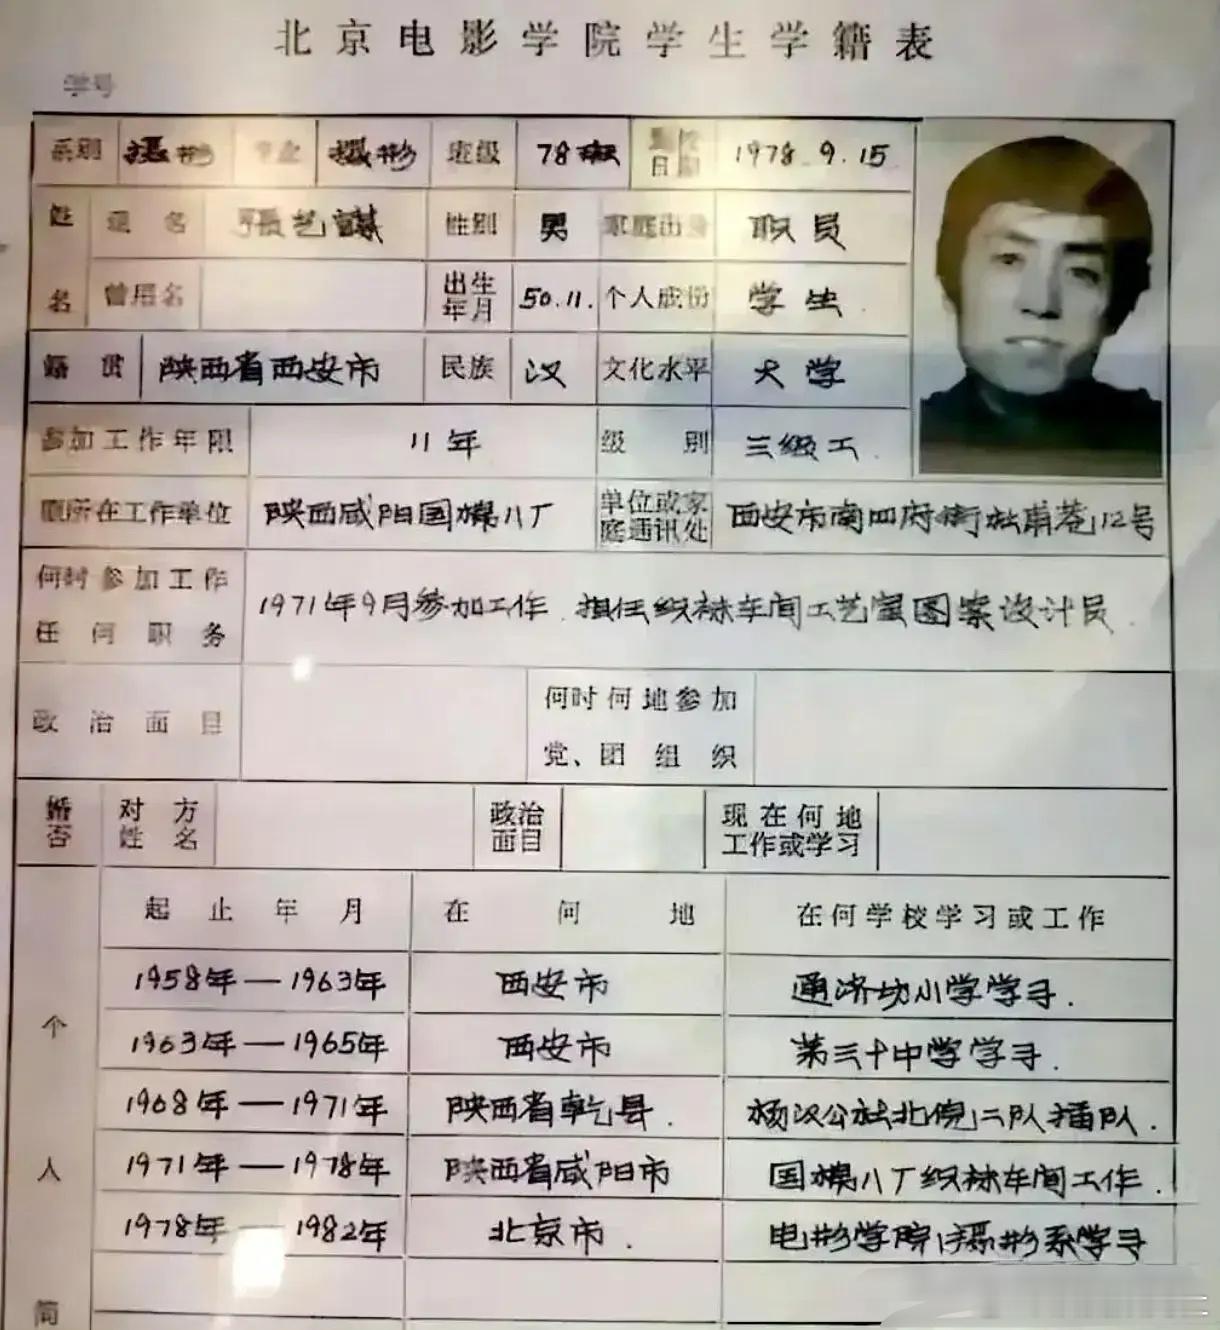 北京电影学院学生学籍表
学号
系别 摄影 专业 摄影 班级 78班 日期 1978.9.15
姓名 现名 張艺謀 性别 男 家庭出身 职员
曾用名 出生年月 50.11. 个人成份 学生
籍贯 陕西省西安市 民族 汉 文化水平 大学
参加工作年限 11年 级别 三级工
原所在工作单位 陕西咸阳国棉八厂 单位或家庭通讯处 西安市南四府街杜甫巷12号
何时参加工作任何职务 1971年9月参加工作.担任织袜车间工艺室图案设计员.
政治面目 何时何地参加党、团组织
婚否 对方姓名 政治面目 现在何地工作或学习
个人简
起止年月 在何地 在何学校学习或工作
1958年—1963年 西安市 通济坊小学学习.
1963年—1965年 西安市 第三十中学学习.
1968年—1971年 陕西省乾县. 杨汉公社北倪二队插队.
1971年—1978年 陕西省咸阳市 国棉八厂织袜车间工作.
1978年—1982年 北京市. 电影学院摄影系学习